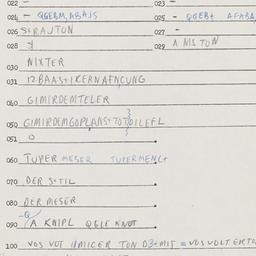 022 –
023 –
024 – QGEBM, ABAJS
025 – QGEBt AFABA,
026 StRAUTON
027 –
028 y
029 A NIS TON
030 NIXTER
031 12 BAASt I KERNAFNCUNG
040 GIMIRDEMTELER
050 GIMIRDEMGOPLANSt TOT
051 0
060 TUPER MESER TUPERMENCH
070 DER StTIL
080 DER MESER
090 A KNIPL QELE KNOT
100 VOS VOT MICER TON D3tMIT = VOSVOLT